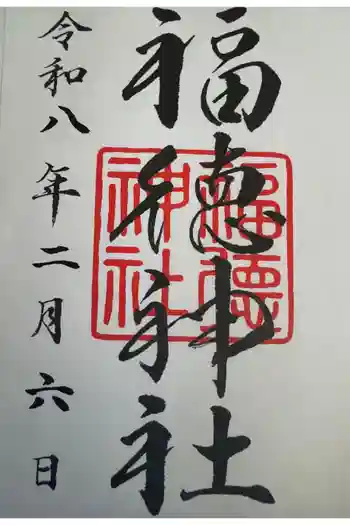 福徳神社
福徳
神社
令和八年二月六日